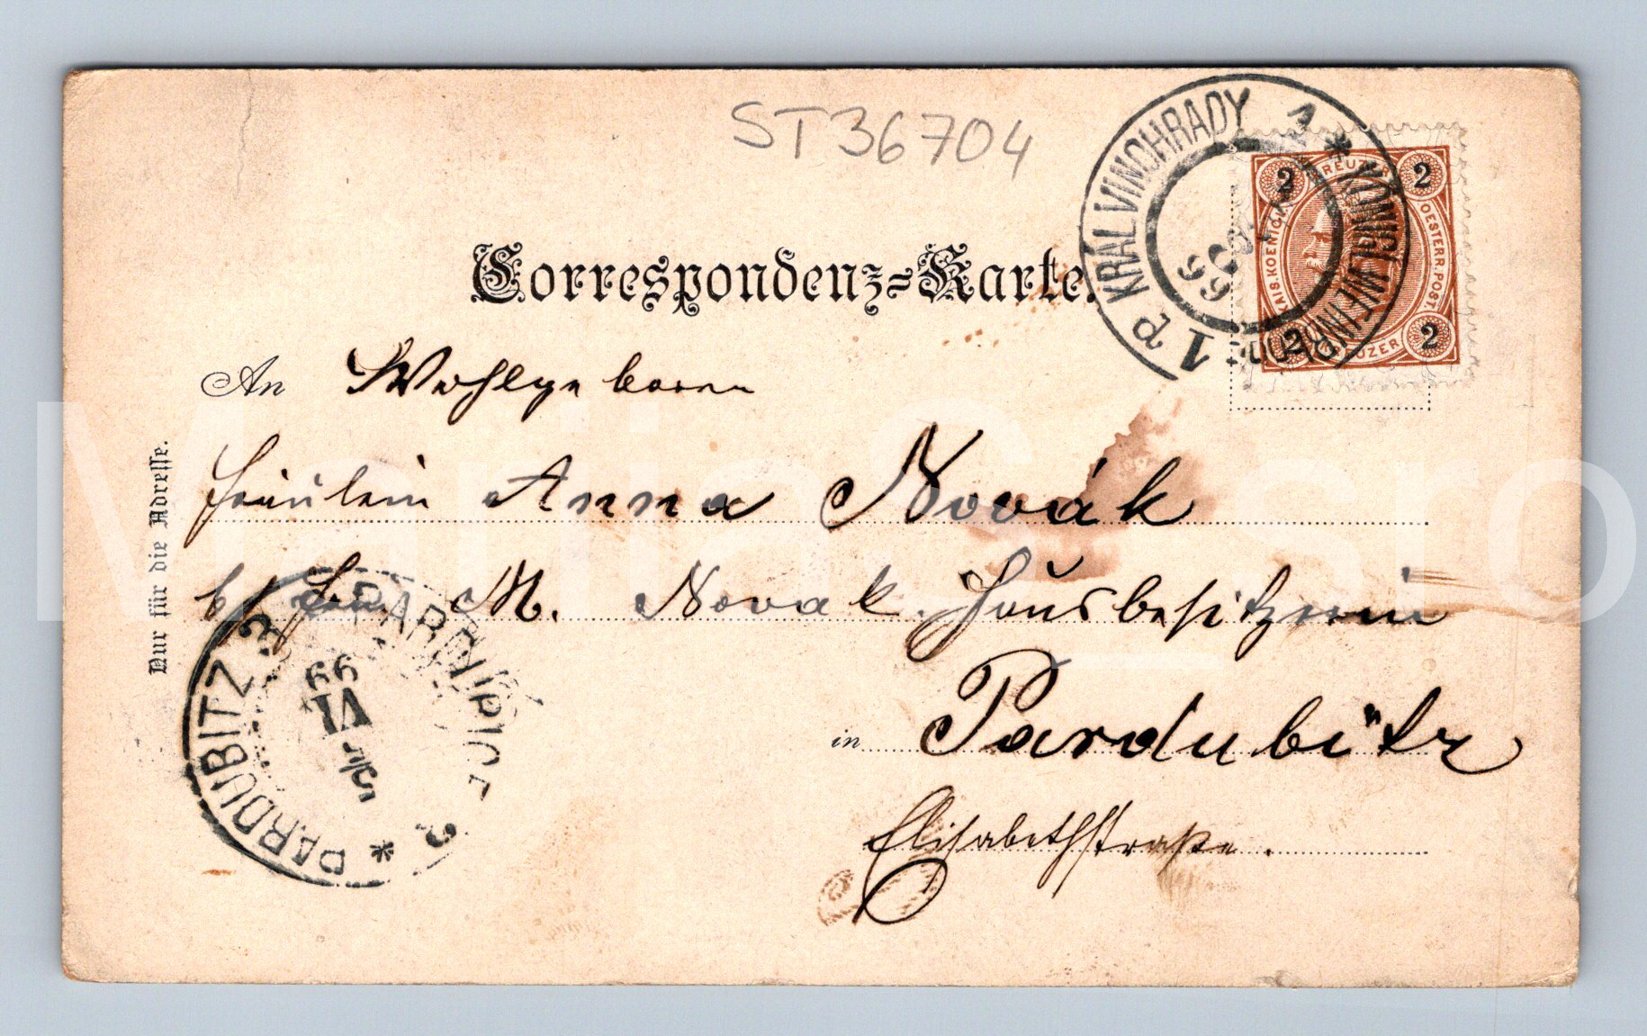 ST36704
KRÁL. VINOHRADY 1 * KÖNIGL. WEINBERGE
1 p
99
2 KREUZER 2
KAIS. KOENIGL. OESTERR. POST
2 KREUZER 2
Correspondenz-Karte.
An Wohlgeboren
Fräulein Anna Novák
b/ Frau M. Novak. Hausbesitzerin
in Pardubitz
Elisabethstraße.
Nur für die Adresse.
PARDUBITZ 3 PARDUBICE 3 *
99
VI
5/6